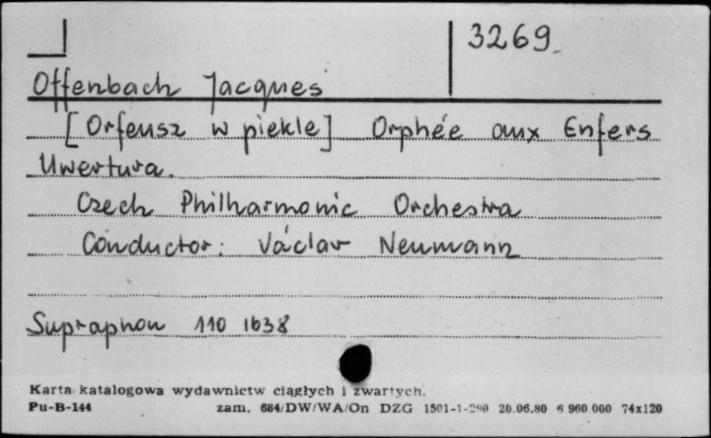 3269
Offenbach Jacques
[Orfeusz w piekle] Orphée aux Enfers
Uwertura.
Czech Philharmonic Orchestra
Conductor: Václav Neumann
Supraphon 110 1638
Karta katalogowa wydawnictw ciągłych i zwartych.
Pu-B-144 zam. 684/DW/WA/On DZG 1501-1-290 20.06.80 6 960.000 74x120